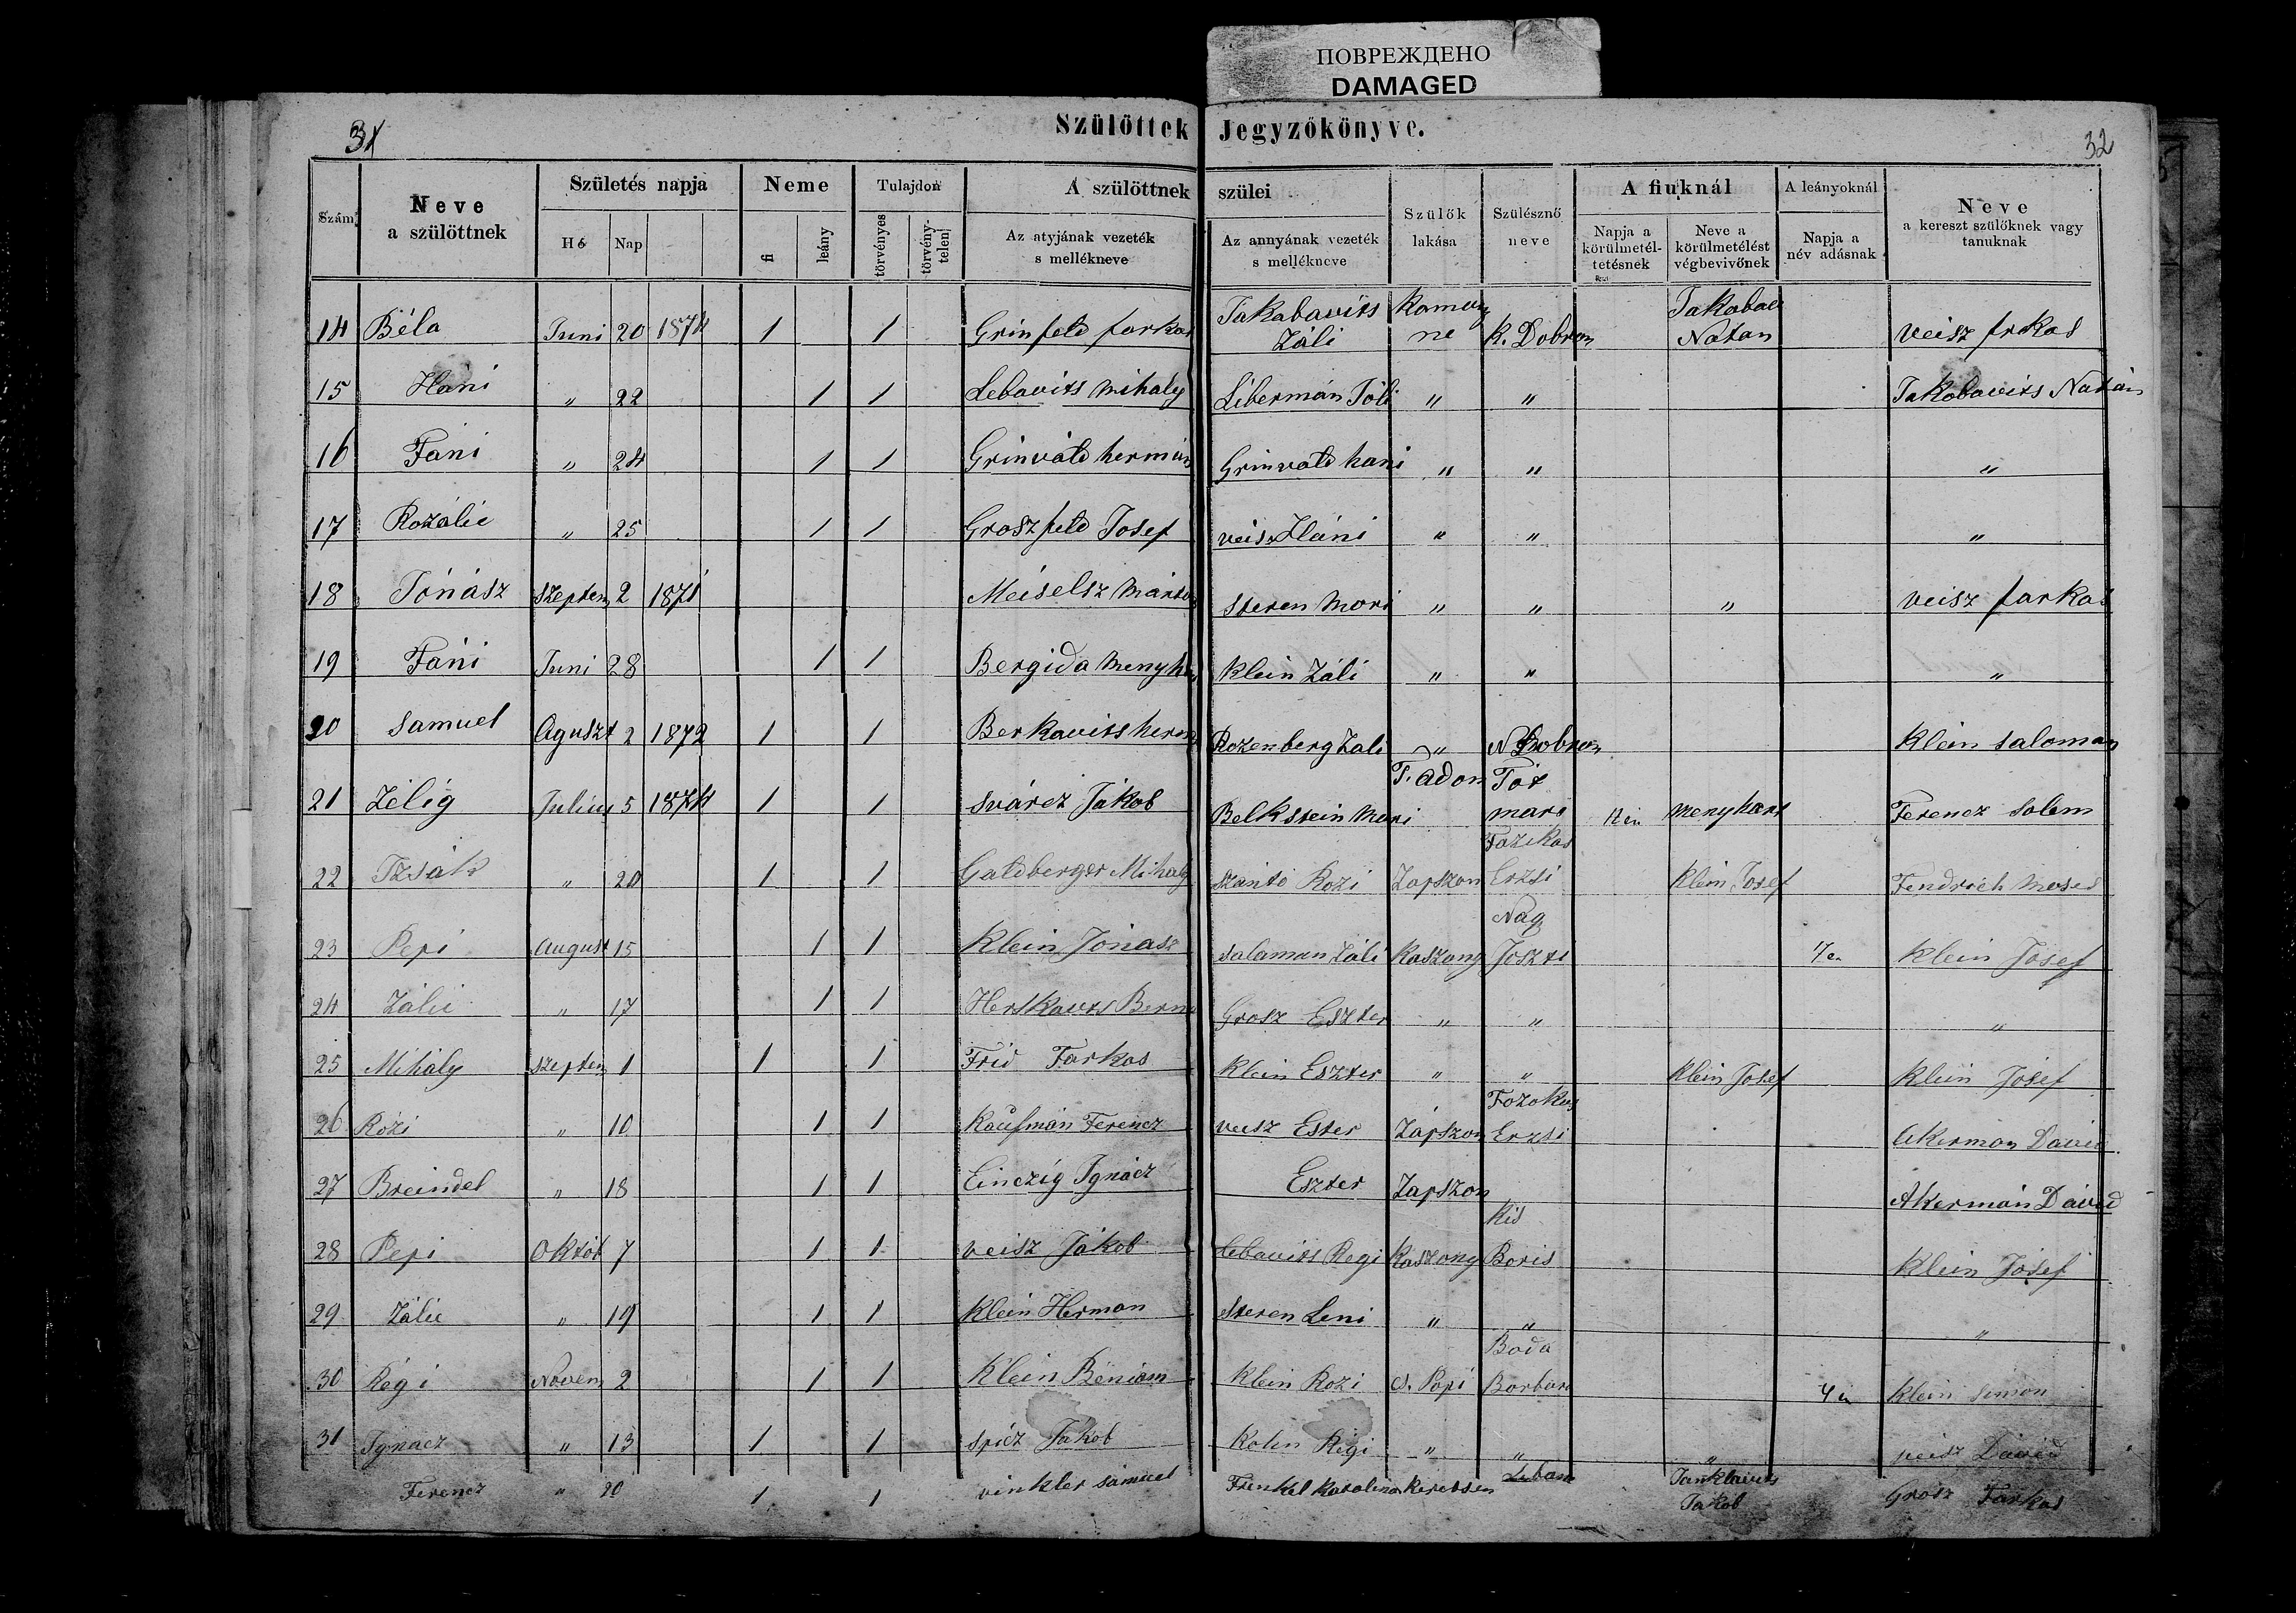 ПОВРЕЖДЕНО
DAMAGED
31
Szülöttek Jegyzőkönyve.
32
Szám
Neve a szülöttnek
Születés napja
Hó
Nap
Neme
fi
leány
Tulajdon
törvényes
törvény-telen
A szülöttnek szülei
Az atyjának vezeték s mellékneve
Az annyának vezeték s mellékneve
Szülők lakása
Szülésznő neve
A fiuknál
Napja a körülmetél-tetésnek
Neve a körülmetélést végbevivőnek
A leányoknál
Napja a név adásnak
Neve a kereszt szülőknek vagy tanuknak
14 Béla Juni 20 1874 1 1 Grinfeld farkas Jakabavits Záli K. Dobron Natan veisz frkas
15 Háni " 22 1 1 Lebavits Mihaly Libermán Tóli " " Jakobavits Natán
16 Fáni " 24 1 1 Grinvald hermán Grinvald hani " " "
17 Rozália " 25 1 1 Groszfeld Josef veisz Háni " " "
18 Jónász Szeptem 2 1871 Meiselsz Márton Steren Mori " " " veisz farkas
19 Fáni Juni 28 1 1 Bergida Menyhár Klein Záli " " "
20 Samuel Aguszt 2 1872 1 1 Berkavits herm Rozenberg Zali " N Dobron Klein Saloman
21 Zélig Julius 5 1874 1 1 Svárcz Jákob Belkstein Mari T. Adon Tót mari Menyhart Ferencz Solem
22 Izsák " 20 1 1 Galdberger Mihaly Szántó Rozi Zapszon Fazikas Erzsi Klein Josef Fendrich Moses
23 Pepi August 15 1 1 Klein Jónasz Salaman Záli Kaszony Nag 7en Klein Josef
24 Zália " 17 1 1 Herskavts Berna Grosz Eszter " " "
25 Mihály Szeptem 1 1 1 Frid Farkas Klein Eszter " " Klein Josef Klein Josef
26 Rózi " 10 1 1 Kaufmán Ferencz veisz Ester Zápszon Fozokas Erzsi Akerman David
27 Breindel " 18 1 1 Einczig Ignácz Eszter Zapszon Akermán Dávid
28 Pepi Október 7 1 1 veisz Jákob Lebavits Regi Kaszony Kis Boris Klein Jósef
29 Zália " 19 1 1 Klein Herman Steren Leni " " "
30 Régi Novem 2 1 1 Klein Béniam Klein Rozi Cs. Papi Boda Borbara Klein Simon
31 Ignacz " 13 1 1 Spicz Jakob Kohn Régi " " " veisz Dávid
Ferencz " 20 1 1 vinkler Samuel Frenkel Karolina Keretsen Janklavits Jakob Grosz Farkas